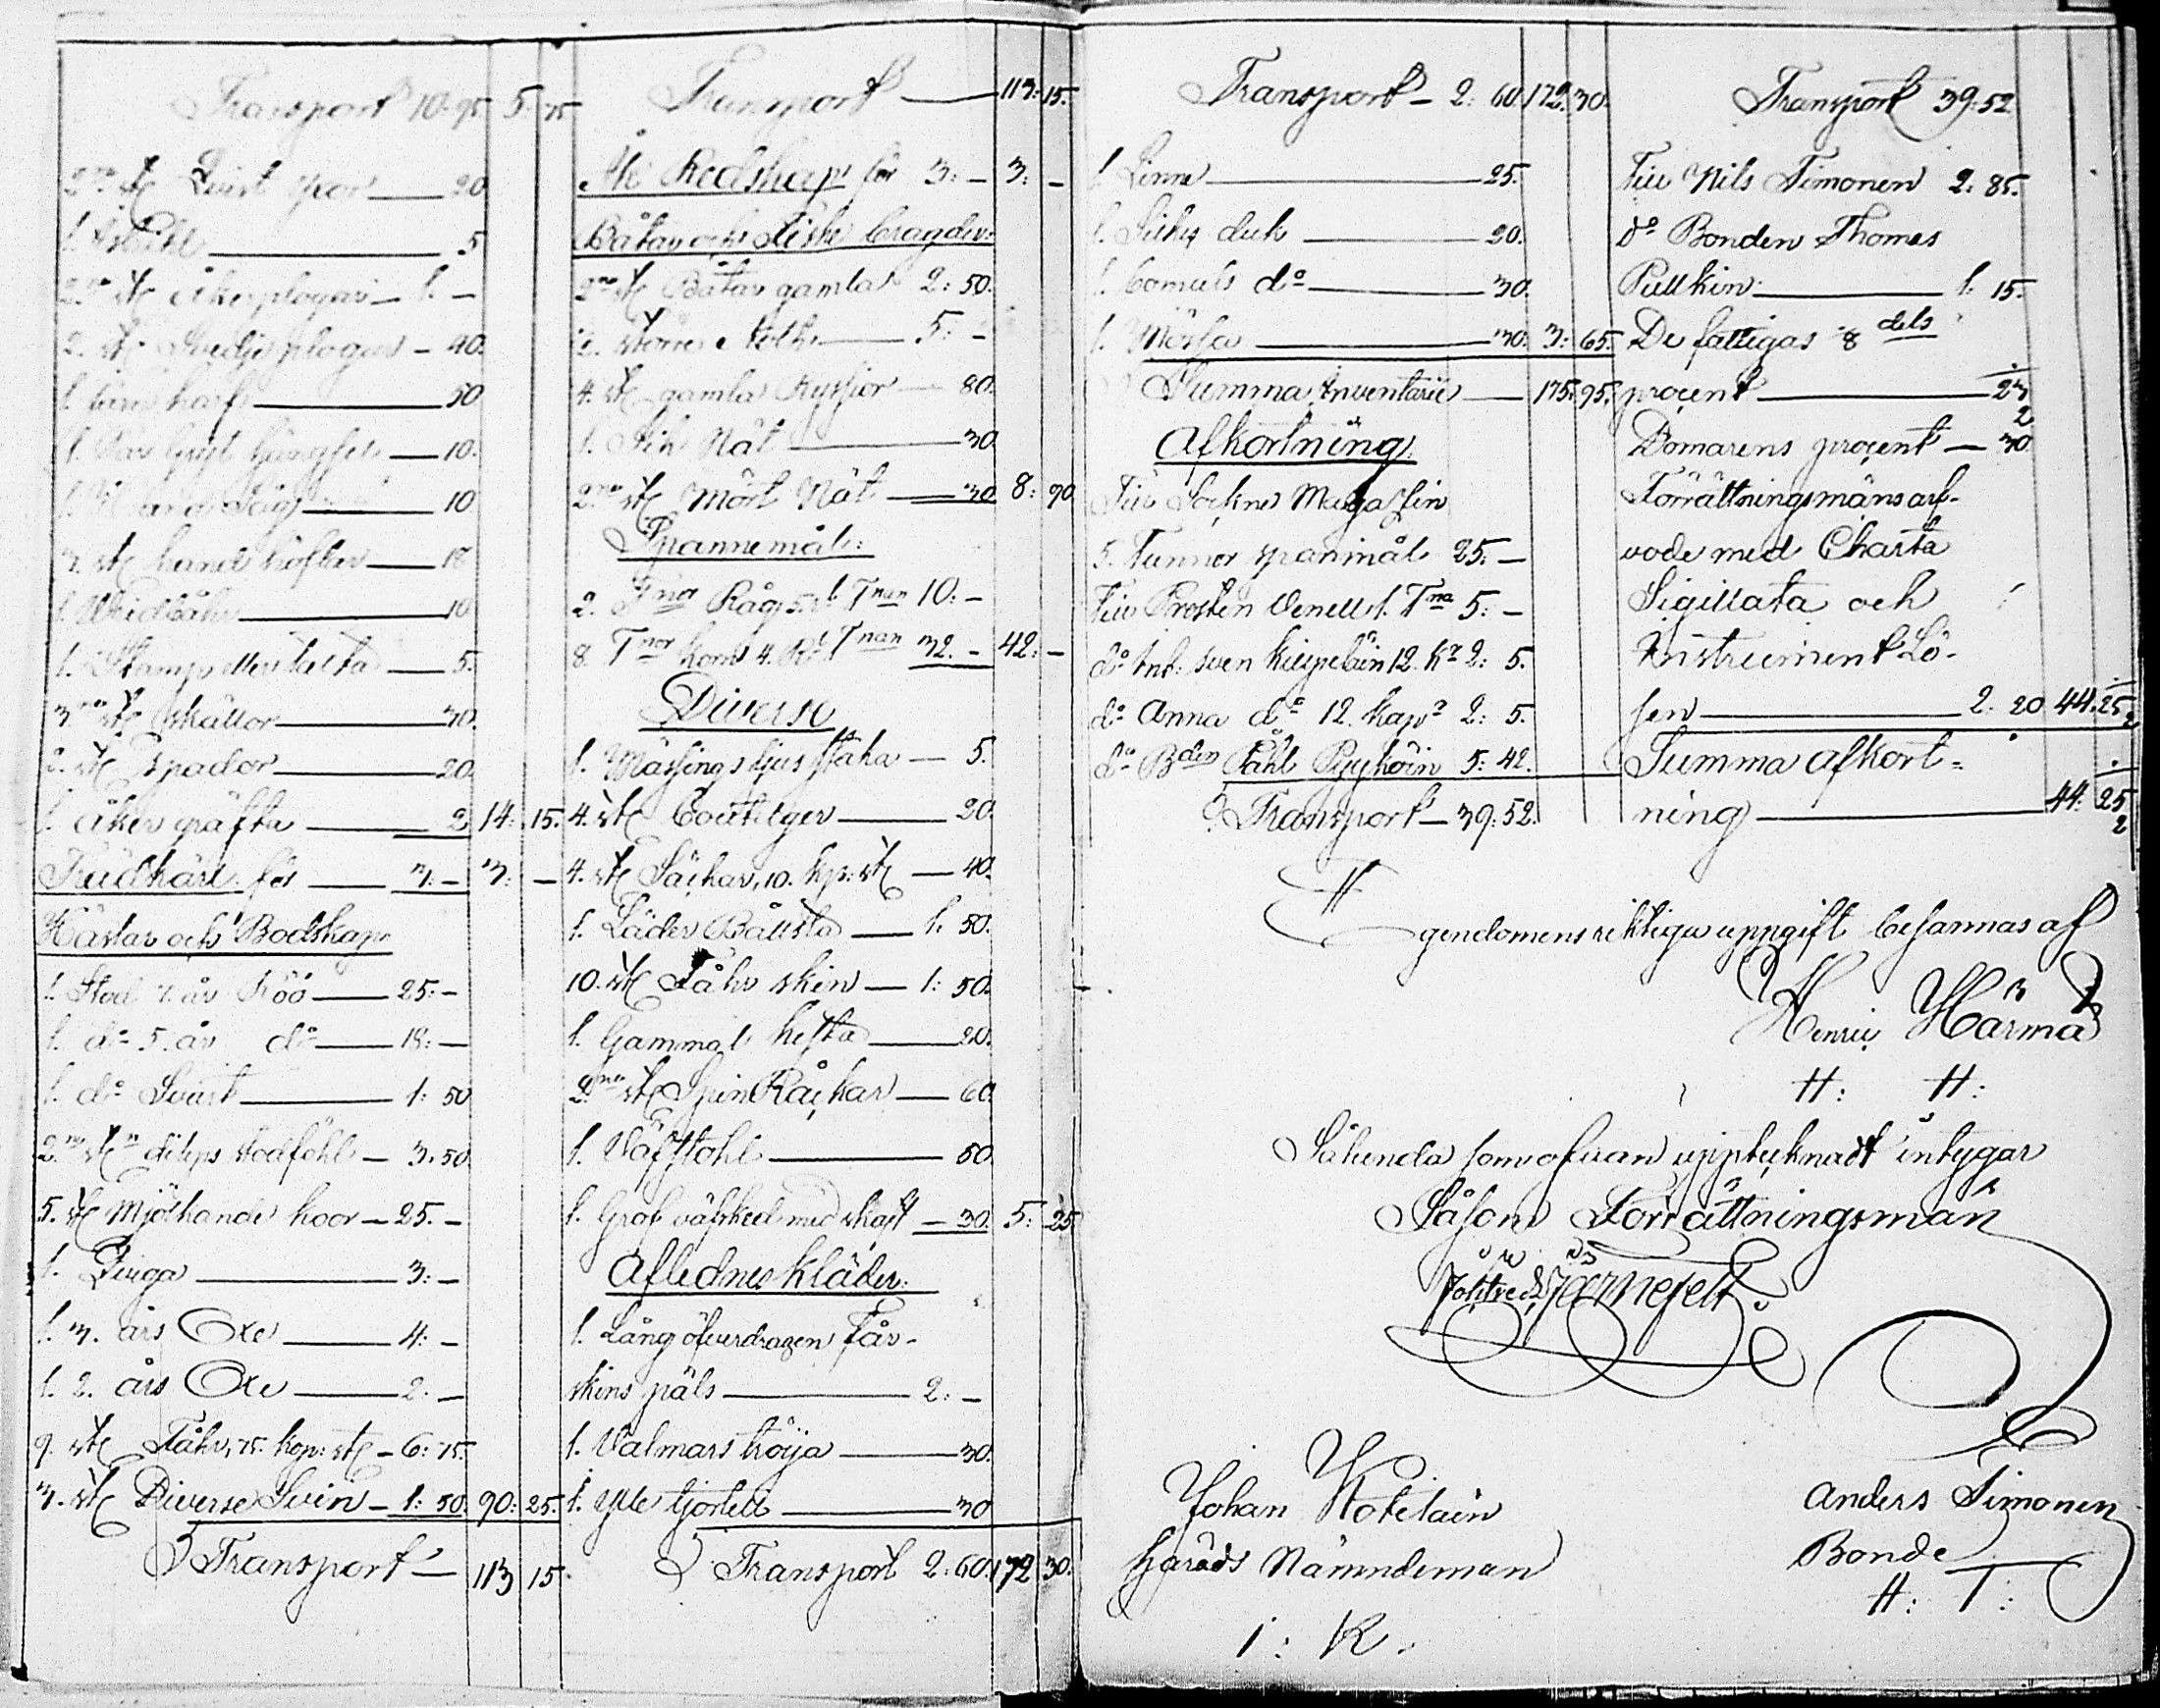 Transport 10:95 5:75
2ne st 20
1. 5
2ne st Åkerplogar 1. –
2. st Svedje plogar – 40.
1. harf 50
1. Par 10.
1. Hand såg 10
3. st hand 18
1. 10
1. Stamp eller 5.
3ne st skällor 30.
2. st spador 20.
1. åker gräfta 2 14: 15.
Träd kärl för 3: – 3: –
Hästar och Bodskap
1. Stod 7. år Röö 25: –
1. do 5. år do 18: –
1. do Svart 1: 50
2ne stn stodföhl – 3. 50
5. st Mjölkande koor – 25. –
1. Qviga 3: –
1. 3. års Oxe 4: –
1. 2. års Oxe 2. –
9. st Fåhr, 75. kop: st – 6: 75.
3. st Diverse Svin – 1: 50. 90: 25.
Transport – 113 15.
Transport 113: 15.
Åk Redskap för 3: – 3: –
Båtar och Fiske bragder:
2ne st Båtar gamla 2: 50.
2. större Noth 5: –
4. st gamla Ryssjor 80.
1. Sik Nät 30
2ne st Mört Nät 30 8: 90
Spannemål:
2. Tnor Råg 5. Tnan 10: –
8 Tnor korn 4. Rl Tnan 32. – 42: –
Diverse
1. Mässings ljus staka — 5.
4. st Bouteljer 20.
4. st Säckar, 10. kp: st — 40.
1. Läder Bälte 1. 50.
10. st Fåhr skin — 1: 50.
1. Gammal 20.
2ne st Spin Råckar — 60
1. Väfstohl 50.
1. Grof väfsked med skaft — 30. 5: 25
Aflednes kläder:
1. Lång öfverdragen Får-
skins päls 2: –
1. Valmars tröija 30.
1. Ylle kjortel 30
Transport 2: 60. 172 30.
Transport – 2: 60 172. 30.
1. Linne 25.
1. Silkes duk 20.
1. Bomuls do 30.
1. Mössa 30. 3: 65.
Summa Inventarii 175. 95.
Afkortning
Till Sockne Magasin
5. Tunnor spanmål 25: –
Till Prosten Venell 1. Tna 5: –
do Sven 12. kr 2: 5.
do Anna do 12. kap 2: 5.
do Bden Påhl Pyyköin 5: 42.
Transport – 39: 52.
Transport 39: 52
Till Nils Simonen 2: 85.
do Bonden Thomas
Pulkin 1: 15.
De fattigas 8 dels
procent 23 2
Domarens procent — 30
Förrättningsmäns arf-
vode med Charta
Sigillata och
Instrument Lö-
sen 2: 20 44. 25 2
Summa afkort-
ning 44: 25 2
Egendomens riktiga uppgift besannas af
Henric Härmä
H: H:
Sålunda som ofvan upptecknadt intygar
Såsom Förrättningsmän
Järnefelt
Johan Kokelain
härads Nämndeman
I: K.
Anders Simonen
Bonde
H: T: